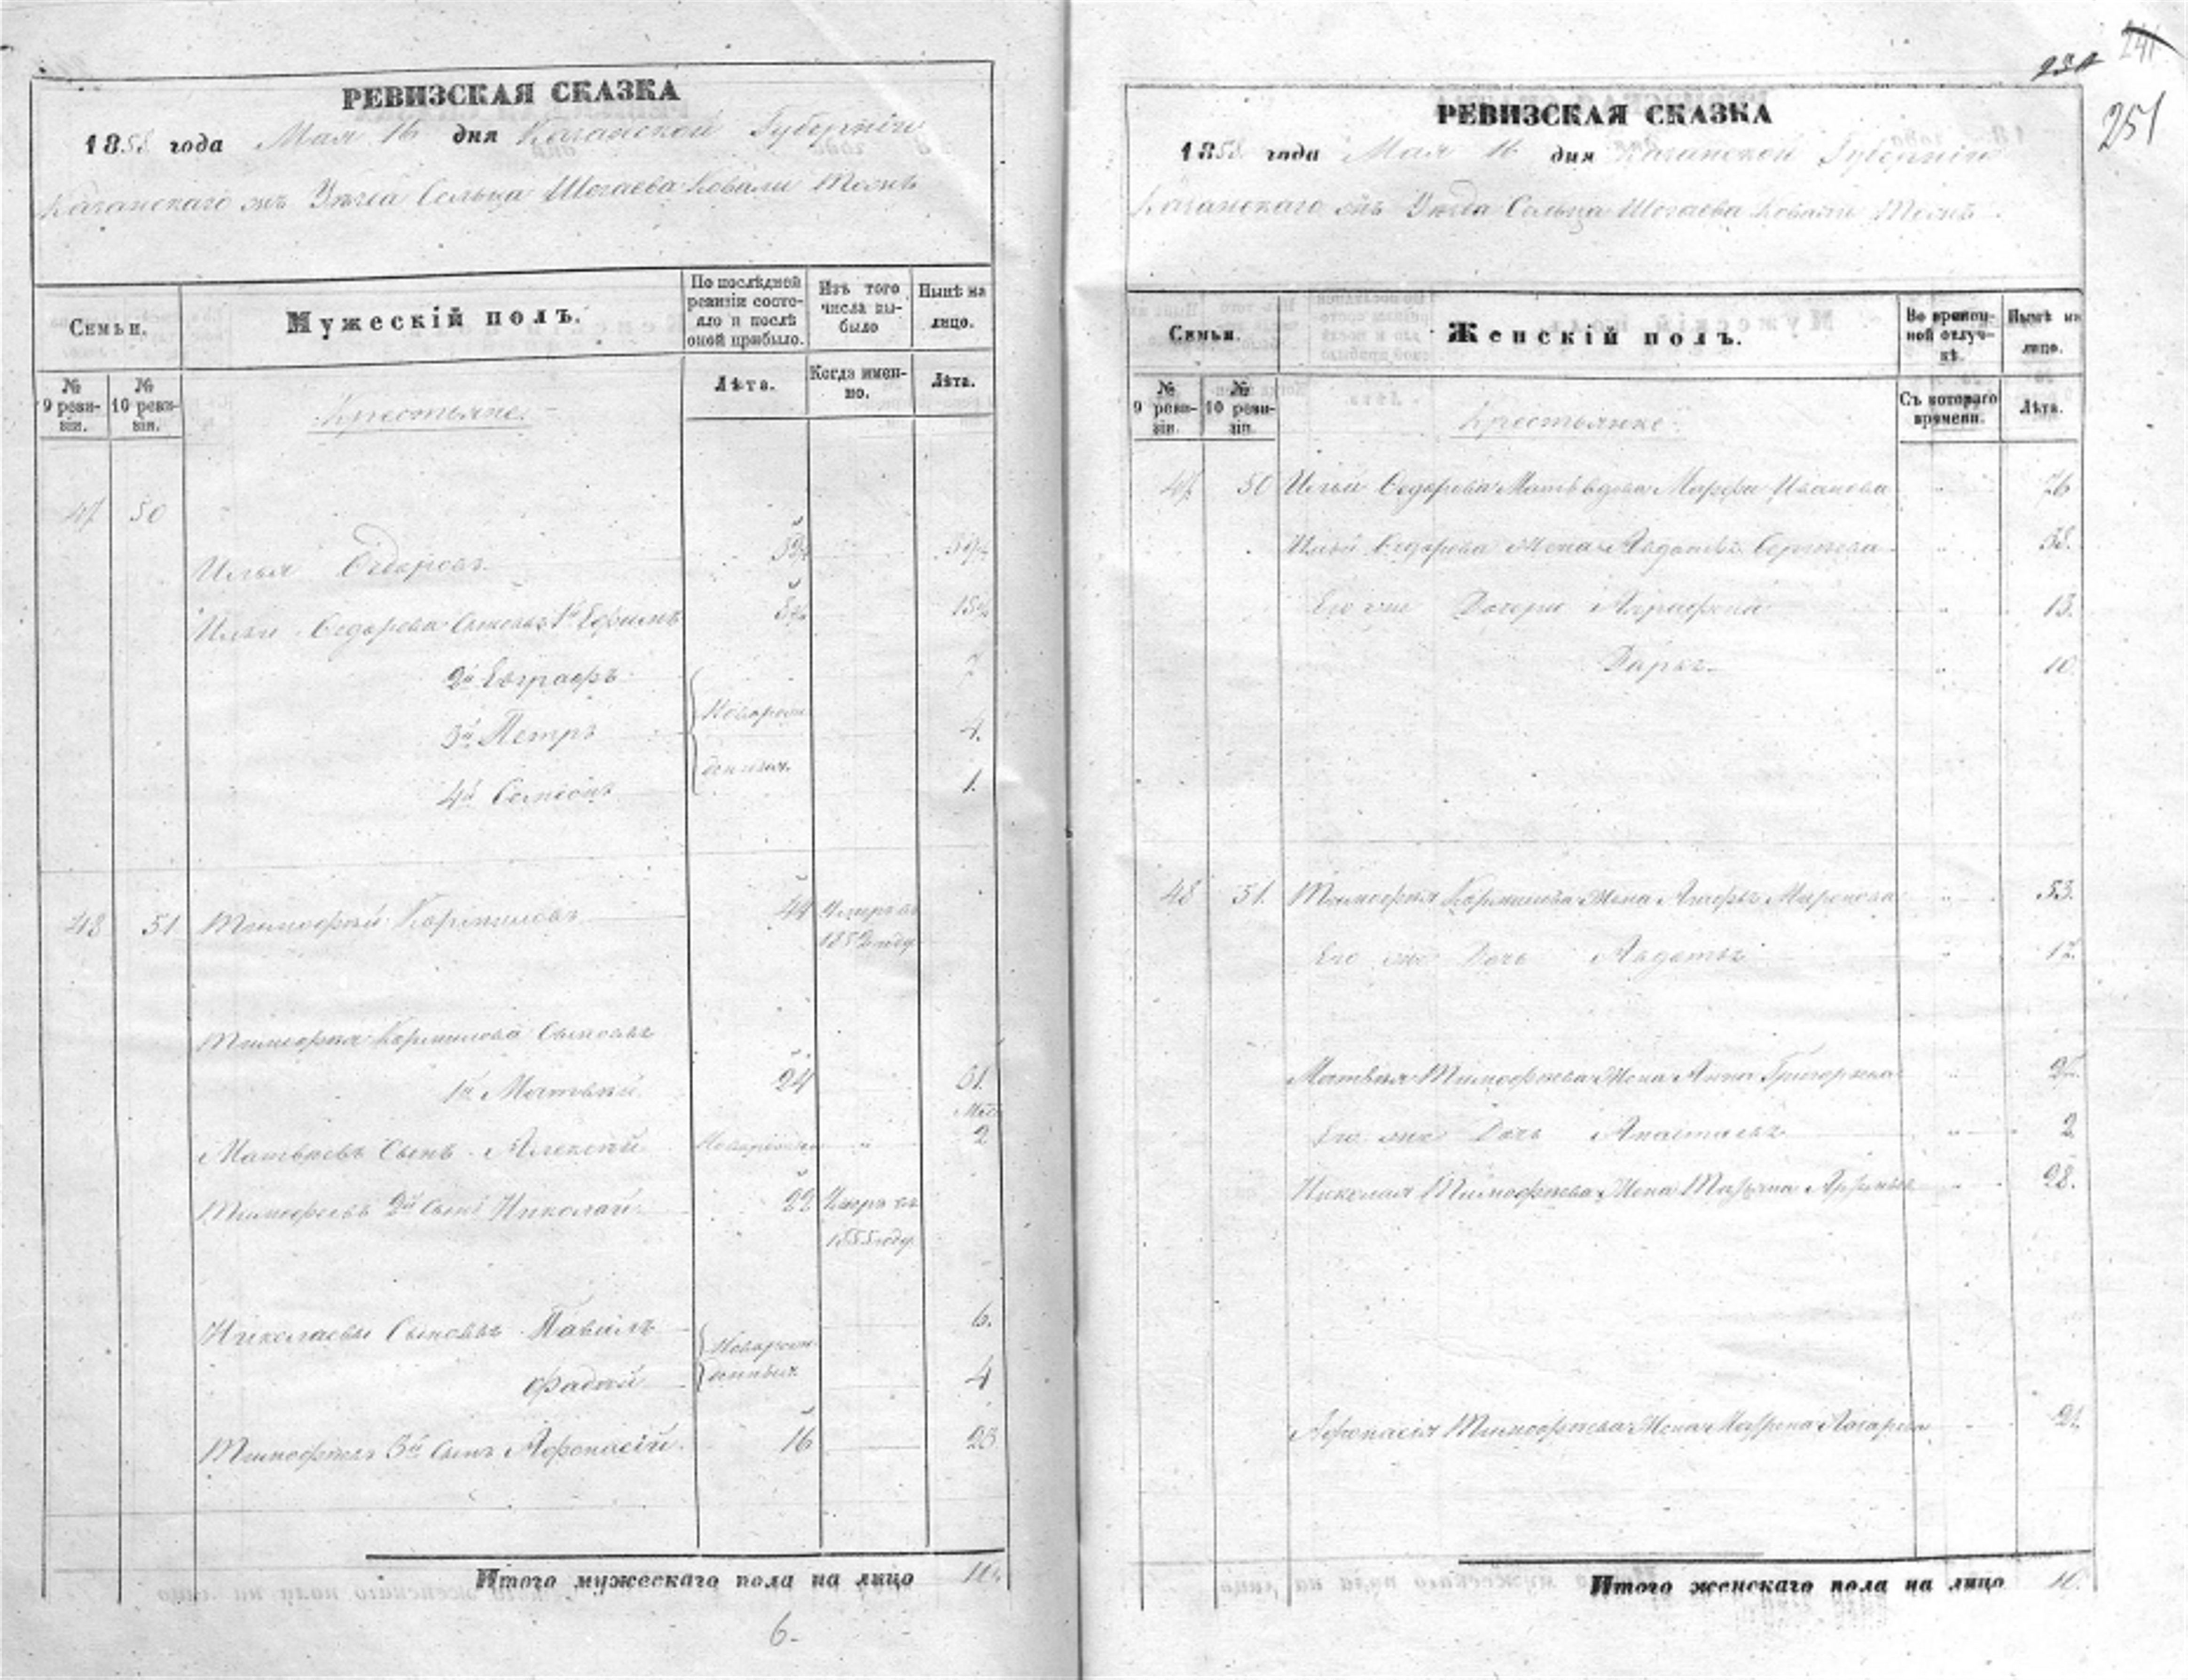 РЕВИЗСКАЯ СКАЗКА
1858 года Мая 16 дня Казанской Губернiи
Казанскаго Уѣзда Сельца Шигаева Ковали тожъ
Семьи.
Мужескiй полъ.
По послѣдней ревизiи состояло и послѣ оной прибыло.
Изъ того числа выбыло
Нынѣ на лицо.
№ 9 ревизiи.
№ 10 ревизiи.
Лѣта.
Когда именно.
Лѣта.
Крестьяне
47 50
Илья Ѳедоровъ
Ильи Ѳедорова Сыновья 1й Ефимъ
2й Евграфъ 7
3й Петръ Новорож- 4.
4й Семіонъ денные 1.
48 51 Тимофей Корниловъ 44 Умеръ въ
1852 году
Тимофея Корнилова Сыновья
1й Матвѣй 24 31.
Мѣс.
Матвѣевъ Сынъ Алексѣй Новорожден 2
Тимофеевъ 2й Сынъ Николай 22 Умеръ въ
1855 году
Николаевы Сыновья Павилъ 6.
Новорож-
Фадѣй денные 4
Тимофеевъ 3й Сынъ Афонасiй 16 23
Итого мужескаго пола на лицо 10.
6.
234 241
251
РЕВИЗСКАЯ СКАЗКА
1858 года Мая 16 дня Казанской Губернiи
Казанскаго Уѣзда Сельца Шигаева Ковали тожъ
Семьи.
Женскiй полъ.
Во временной отлучкѣ.
Нынѣ на лицо.
№ 9 ревизiи.
№ 10 ревизiи.
Съ котораго времени.
Лѣта.
Крестьянке
47 50 Ильи Ѳедорова Марфа Иванова 76
Ильи Ѳедорова Жена Авдотья Сергеева 38.
Его же Дочери Аграфена 13.
Дарья 10.
48 51. Тимофея Корнилова Жена Агафья Миронова 53.
Его же Дочь Авдотья 17.
Матвѣя Тимофеева Жена Анна Григорьева
Его же Дочь Анастасья 2
Николая Тимофеева Жена 28.
Афонасiя Тимофеева Жена Матрена Лазарева 21.
Итого женскаго пола на лицо 10.